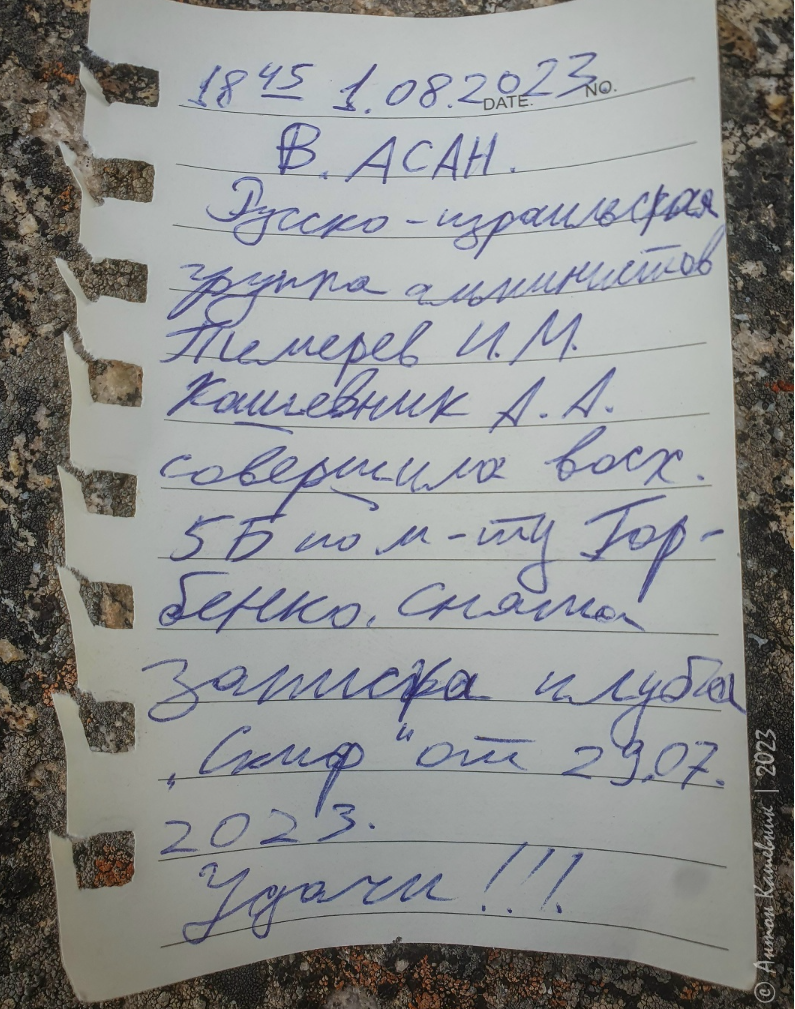 18 45 1.08.2023
DATE. NO.
В. АСАН.
Русско-израильская
группа альпинистов
Тимерев И.М.
Кашевник А.А.
совершила восх.
5Б по м-ту Гор-
бенко. Снята
записка клуба
„Скиф" от 29.07.
2023.
Удачи!!!
© Антон Кашевник | 2023